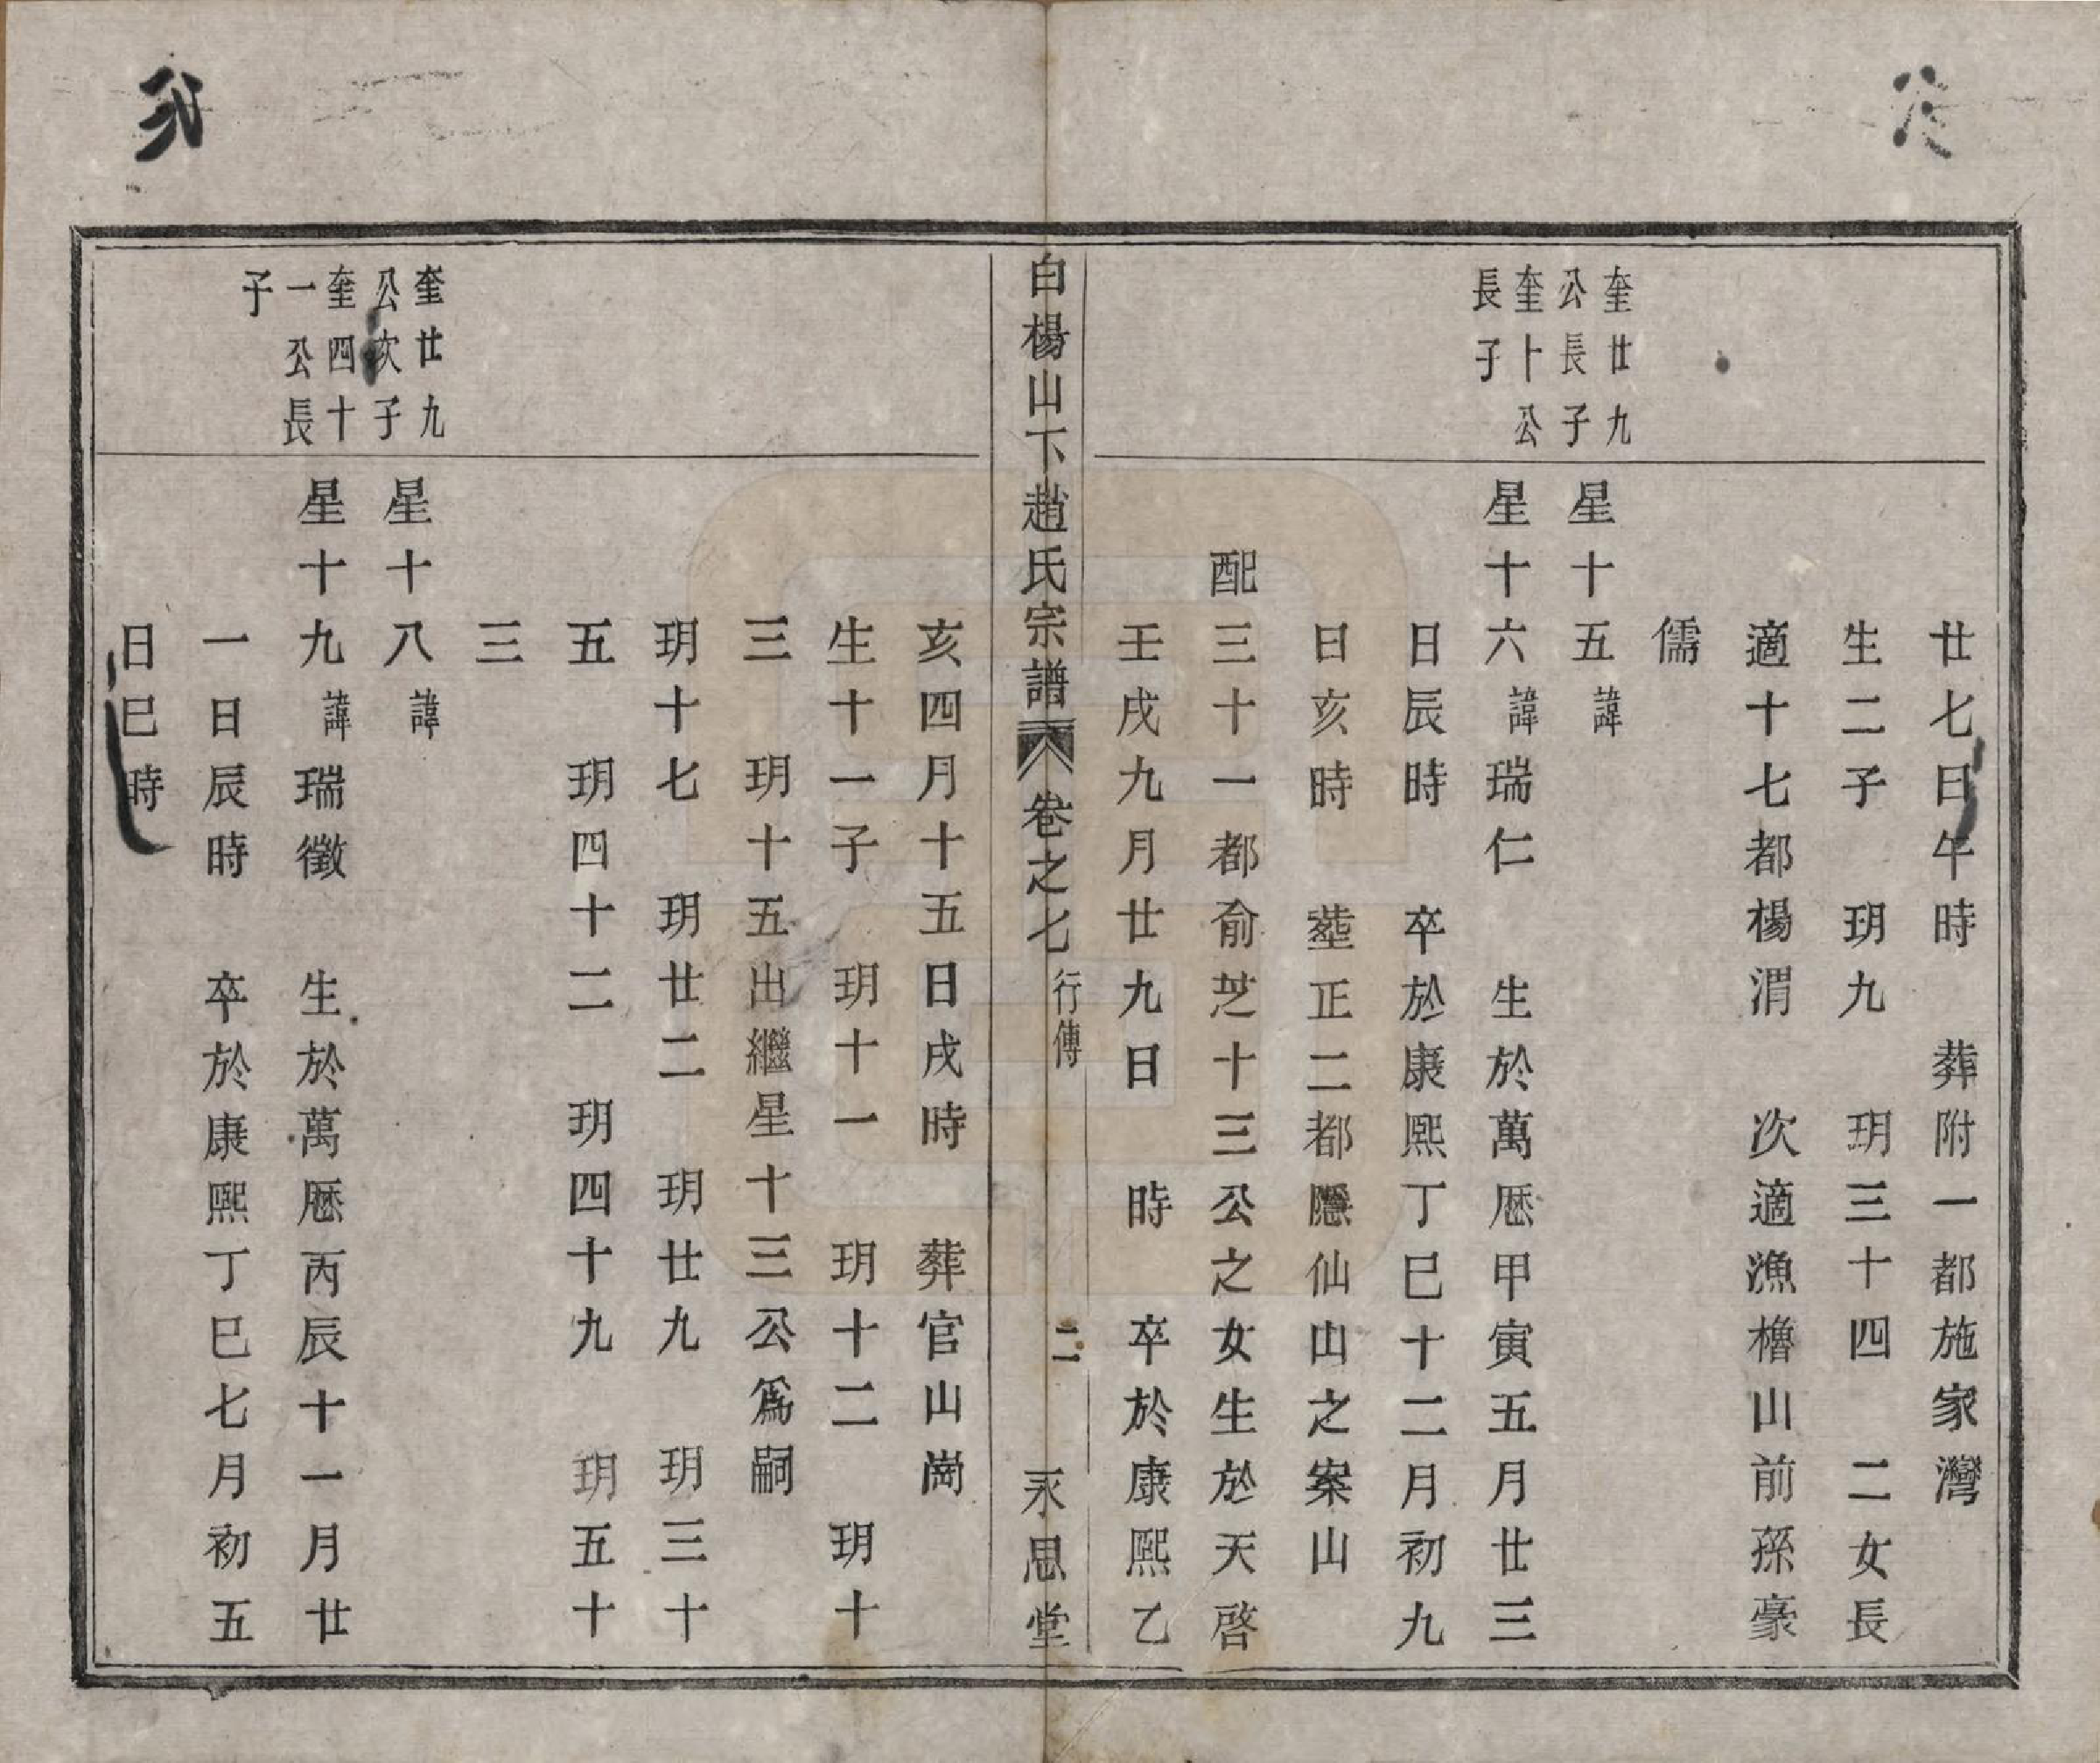 廿七日午時　葬附一都施家灣
生二子　玥九　玥三十四　二女長
適十七都楊渭　次適漁櫓山前孫豪
儒
奎廿九
公長子
星十五諱
奎十公
長子
星十六諱瑞仁　生於萬厯甲寅五月廿三
日辰時　卒於康熙丁巳十二月初九
日亥時　塟正二都隱仙山之案山
配三十一都俞芝十三公之女生於天啓
壬戌九月廿九日　時　卒於康熙乙
白楊山下趙氏宗譜　卷之七　行傳　二　永思堂
亥四月十五日戌時　葬官山崗
生十一子　玥十一　玥十二　玥十
三　玥十五出繼星十三公爲嗣
玥十七　玥廿二　玥廿九　玥三十
五　玥四十二　玥四十九　玥五十
三
奎廿九
公次子
星十八諱
奎四十
一公長
子
星十九諱瑞徵　生於萬厯丙辰十一月廿
一日辰時　卒於康熙丁巳七月初五
日巳時